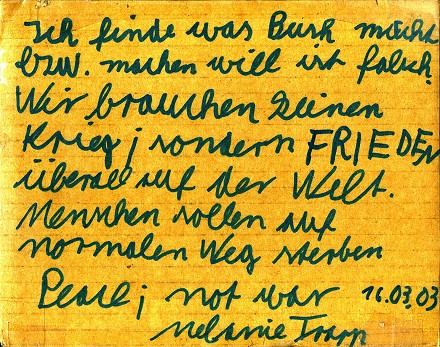 Ich finde was Bush macht
bzw. machen will ist falsch.
Wir brauchen keinen
Krieg; sondern FRIEDEN
überall auf der Welt.
Menschen sollen auf
normalen Weg sterben
Peace; not war 16.03.03
Melanie Trapp